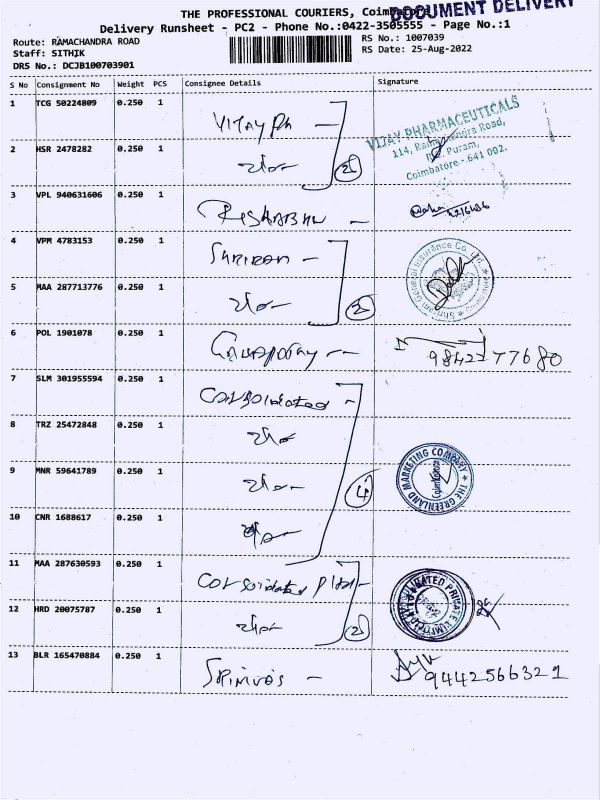 DOCUMENT DELIVERY
THE PROFESSIONAL COURIERS, Coimbatore
Delivery Runsheet - PC2 - Phone No.:0422-3505555 - Page No.:1
Route: RAMACHANDRA ROAD
RS No.: 1007039
Staff: SITHIK
RS Date: 25-Aug-2022
DRS No.: DCJB100703901
S No Consignment No Weight PCS Consignee Details Signature
1 TCG 50224809 0.250 1 Vijay Ph
VIJAY PHARMACEUTICALS
114, Ramachandra Road,
R.S. Puram,
Coimbatore - 641 002.
2 HSR 2478282 0.250 1 2
3 VPL 940631606 0.250 1 Rishabh
4 VPM 4783153 0.250 1 Shriram
Shriram General Insurance Co. Ltd.
5 MAA 287713776 0.250 1 2
6 POL 1901078 0.250 1 Ganapathy 9842277680
7 SLM 301955594 0.250 1 Consolidated
8 TRZ 25472848 0.250 1
THE GREENLAND MARKETING COMPANY
9 MNR 59641789 0.250 1 4
10 CNR 1688617 0.250 1
11 MAA 287630593 0.250 1 Consolidated
PRIVATE LIMITED
12 HRD 20075787 0.250 1 2
13 BLR 165470884 0.250 1 Srinivas 9442566321